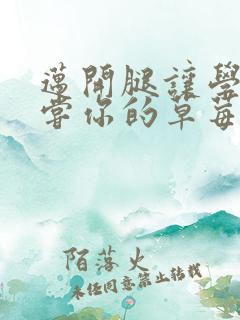 邁開腿讓學
嘗你的草莓
陌落火
未经同意禁止转载